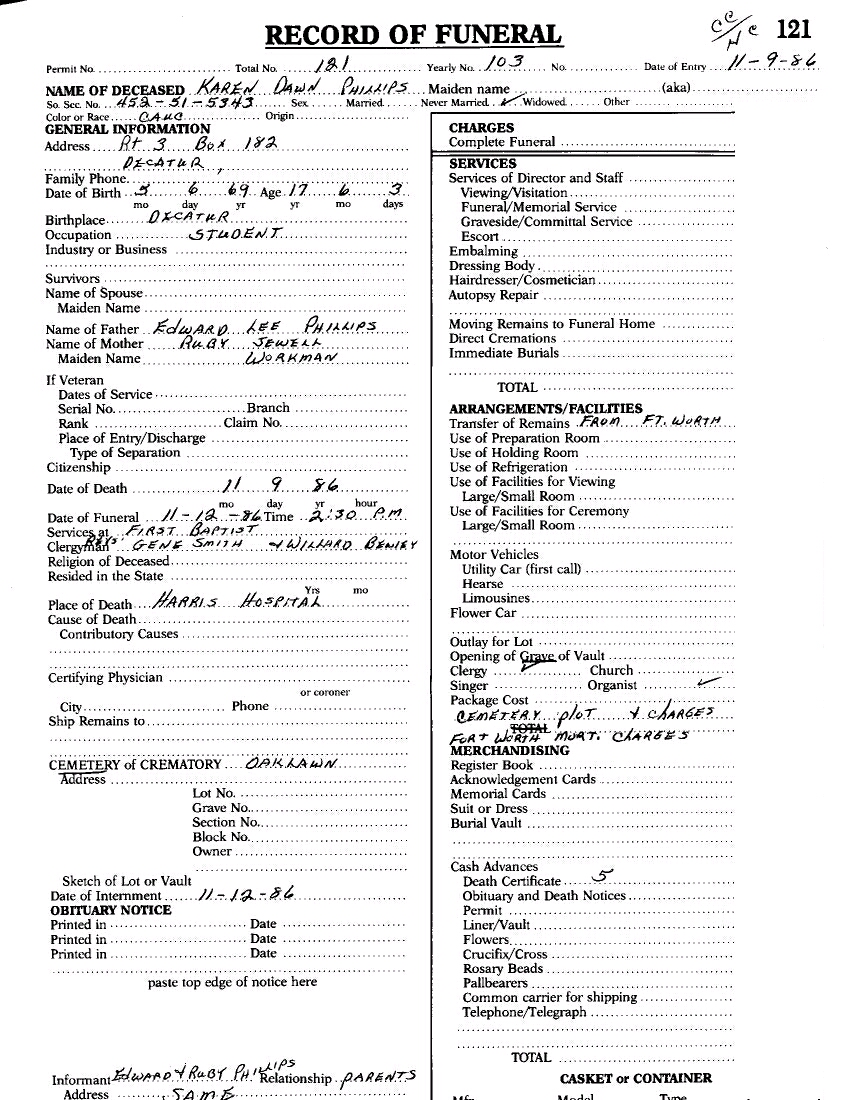 RECORD OF FUNERAL
CC
H C
121
Permit No. Total No. 121 Yearly No. 103 No. Date of Entry 11-9-86
NAME OF DECEASED KAREN DAWN PHILLIPS Maiden name (aka)
So. Sec. No. 452-51-5343 Sex Married Never Married ✓ Widowed Other
Color or Race CAUC Origin
GENERAL INFORMATION
Address Rt 3 Box 182
DECATUR,
Family Phone
Date of Birth 5 6 69 Age 17 6 3
mo day yr yr mo days
Birthplace DECATUR
Occupation STUDENT
Industry or Business
Survivors
Name of Spouse
Maiden Name
Name of Father EDWARD LEE PHILLIPS
Name of Mother RUBY JEWELL
Maiden Name WORKMAN
If Veteran
Dates of Service
Serial No. Branch
Rank Claim No.
Place of Entry/Discharge
Type of Separation
Citizenship
Date of Death 11 9 86
mo day yr hour
Date of Funeral 11-12-86 Time 2:30 P.M
Services at FIRST BAPTIST
Clergyman REVS GENE SMITH & WILLARD
Religion of Deceased
Resided in the State
Yrs mo
Place of Death HARRIS HOSPITAL
Cause of Death
Contributory Causes
Certifying Physician
or coroner
City Phone
Ship Remains to
CEMETERY of CREMATORY OAKLAWN
Address
Lot No.
Grave No.
Section No.
Block No.
Owner
Sketch of Lot or Vault
Date of Internment 11-12-86
OBITUARY NOTICE
Printed in Date
Printed in Date
Printed in Date
paste top edge of notice here
Informant EDWARD & RUBY PHILLIPS Relationship PARENTS
Address SAME
CHARGES
Complete Funeral
SERVICES
Services of Director and Staff
Viewing/Visitation
Funeral/Memorial Service
Graveside/Committal Service
Escort
Embalming
Dressing Body
Hairdresser/Cosmetician
Autopsy Repair
Moving Remains to Funeral Home
Direct Cremations
Immediate Burials
TOTAL
ARRANGEMENTS/FACILITIES
Transfer of Remains FROM FT. WORTH
Use of Preparation Room
Use of Holding Room
Use of Refrigeration
Use of Facilities for Viewing
Large/Small Room
Use of Facilities for Ceremony
Large/Small Room
Motor Vehicles
Utility Car (first call)
Hearse
Limousines
Flower Car
Outlay for Lot
Opening of Grave of Vault
Clergy ✓ Church
Singer Organist ✓
Package Cost
CEMETERY PLOT & CHARGES
TOTAL
FORT WORTH MORT. CHARGES
MERCHANDISING
Register Book
Acknowledgement Cards
Memorial Cards
Suit or Dress
Burial Vault
Cash Advances
Death Certificate 5
Obituary and Death Notices
Permit
Liner/Vault
Flowers
Crucifix/Cross
Rosary Beads
Pallbearers
Common carrier for shipping
Telephone/Telegraph
TOTAL
CASKET or CONTAINER
Mfg. Model Type